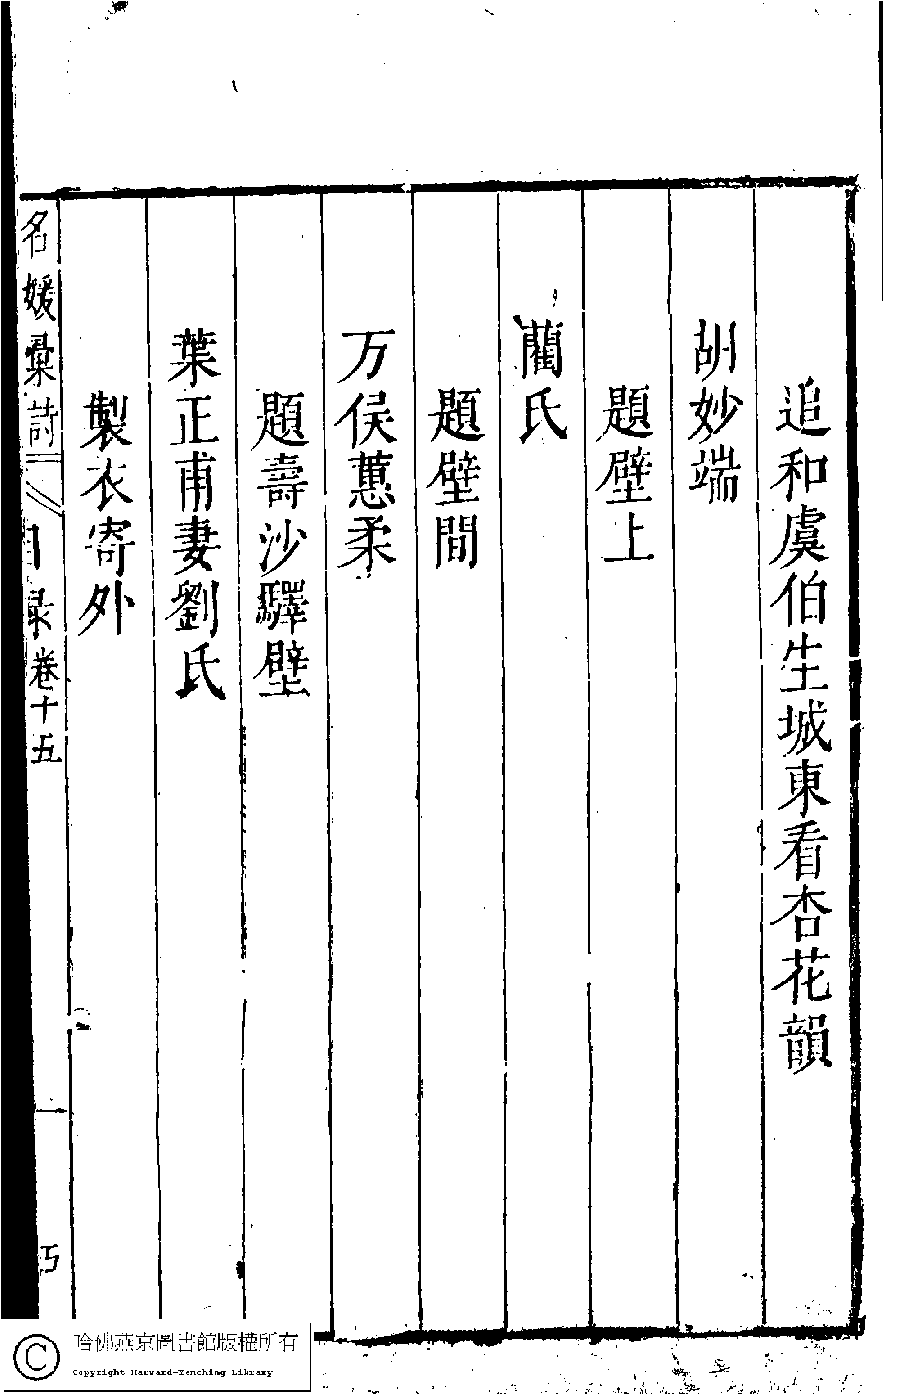 追和虞伯生城東看杏花韻
胡妙端
題壁上
藺氏
題壁間
万俟蕙柔
題壽沙驛壁
葉正甫妻劉氏
製衣寄外
名媛彙詩 目録卷十五 一
哈佛燕京圖書館版權所有
Copyright Harvard-Yenching Library